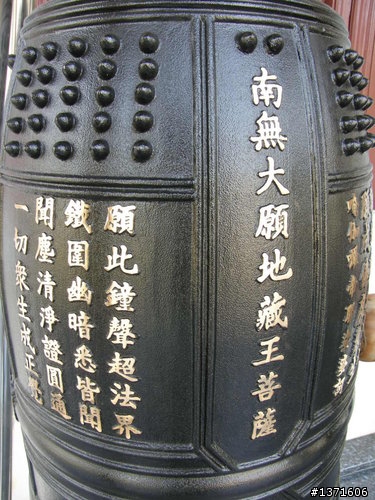 南無大願地藏王菩薩
願此鐘聲超法界
鐵圍幽暗悉皆聞
聞塵清淨證圓通
一切眾生成正覺
#1371606